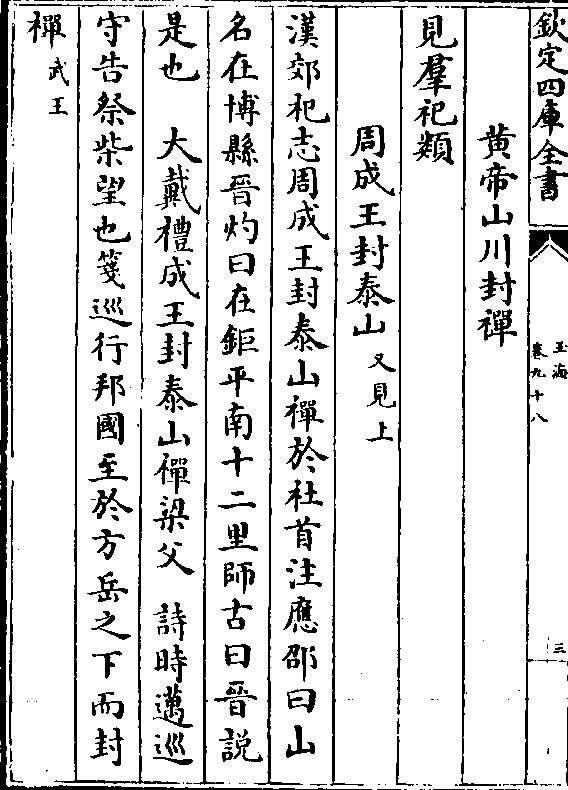 欽定四庫全書
玉海
卷九十八
三
黄帝山川封禪
見羣祀類
周成王封泰山又見上
漢郊祀志周成王封泰山禪於社首注應邵曰山
名在博縣晉灼曰在鉅平南十二里師古曰晉説
是也　大戴禮成王封泰山禪梁父　詩時邁巡
守告祭柴望也箋巡行邦國至於方岳之下而封
禪武王